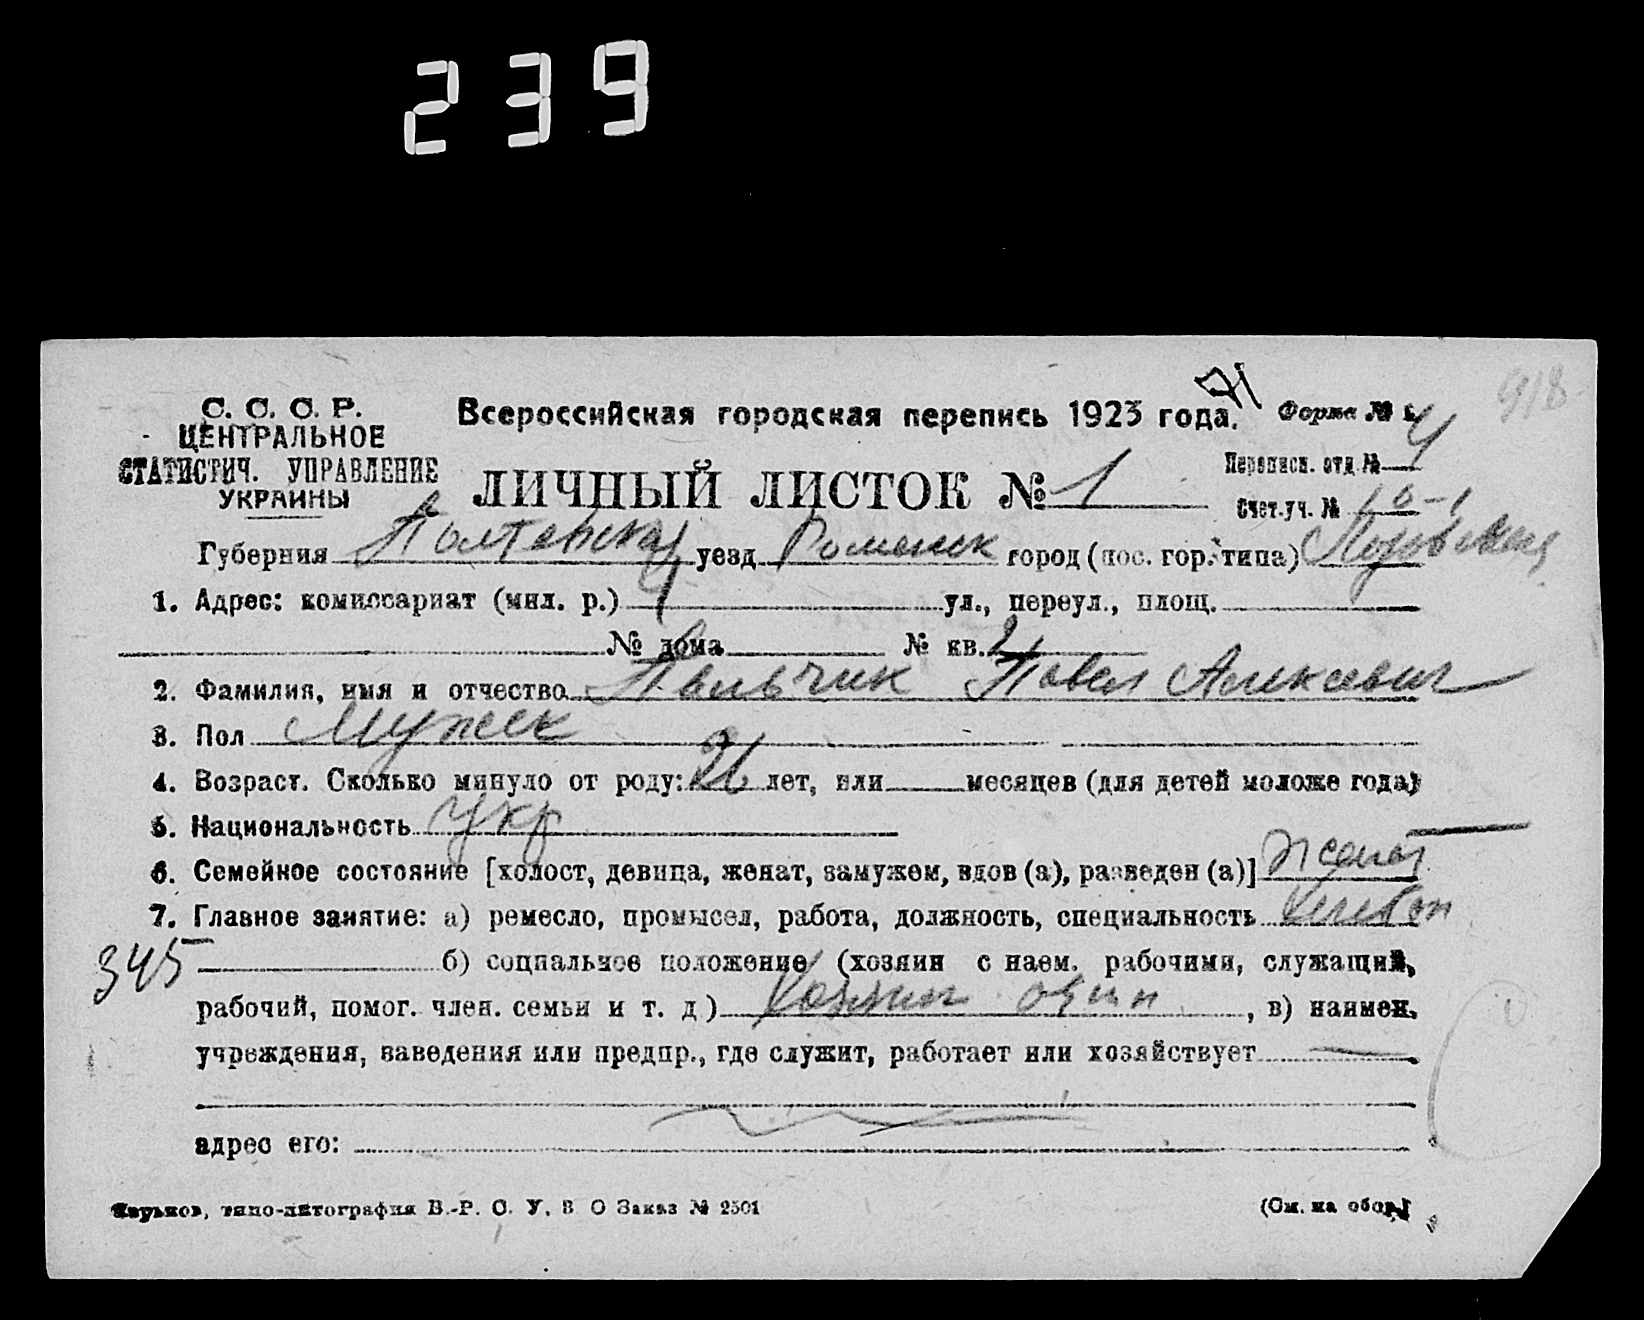 239
918
С. С. С. Р.
ЦЕНТРАЛЬНОЕ
СТАТИСТИЧ. УПРАВЛЕНИЕ
УКРАИНЫ
Всероссийская городская перепись 1923 года.
Форма № 1
Переписн. отд. № 4
ЛИЧНЫЙ ЛИСТОК № 1
Счет.уч. №
Губерния Полтавская уезд Роменск город (пос. гор. типа)
1. Адрес: комиссариат (мил. р.) ул., переул., площ.
№ дома № кв.
2. Фамилия, имя и отчество Пальчик Павел Алексевич
3. Пол Мужск
4. Возраст. Сколько минуло от роду: 26 лет, или месяцев (для детей моложе года)
5. Национальность Укр
6. Семейное состояние [холост, девица, женат, замужем, вдов (а), разведен (а)] женат
7. Главное занятие: а) ремесло, промысел, работа, должность, специальность
345 б) социальное положение (хозяин с наем. рабочими, служащий,
рабочий, помог. член. семьи и т. д) Хозяин один, в) наимен.
учреждения, заведения или предпр., где служит, работает или хозяйствует
адрес его:
Харьков, типо-литография В.-Р. С. У. В О Заказ № 2501
(См. на обор.)